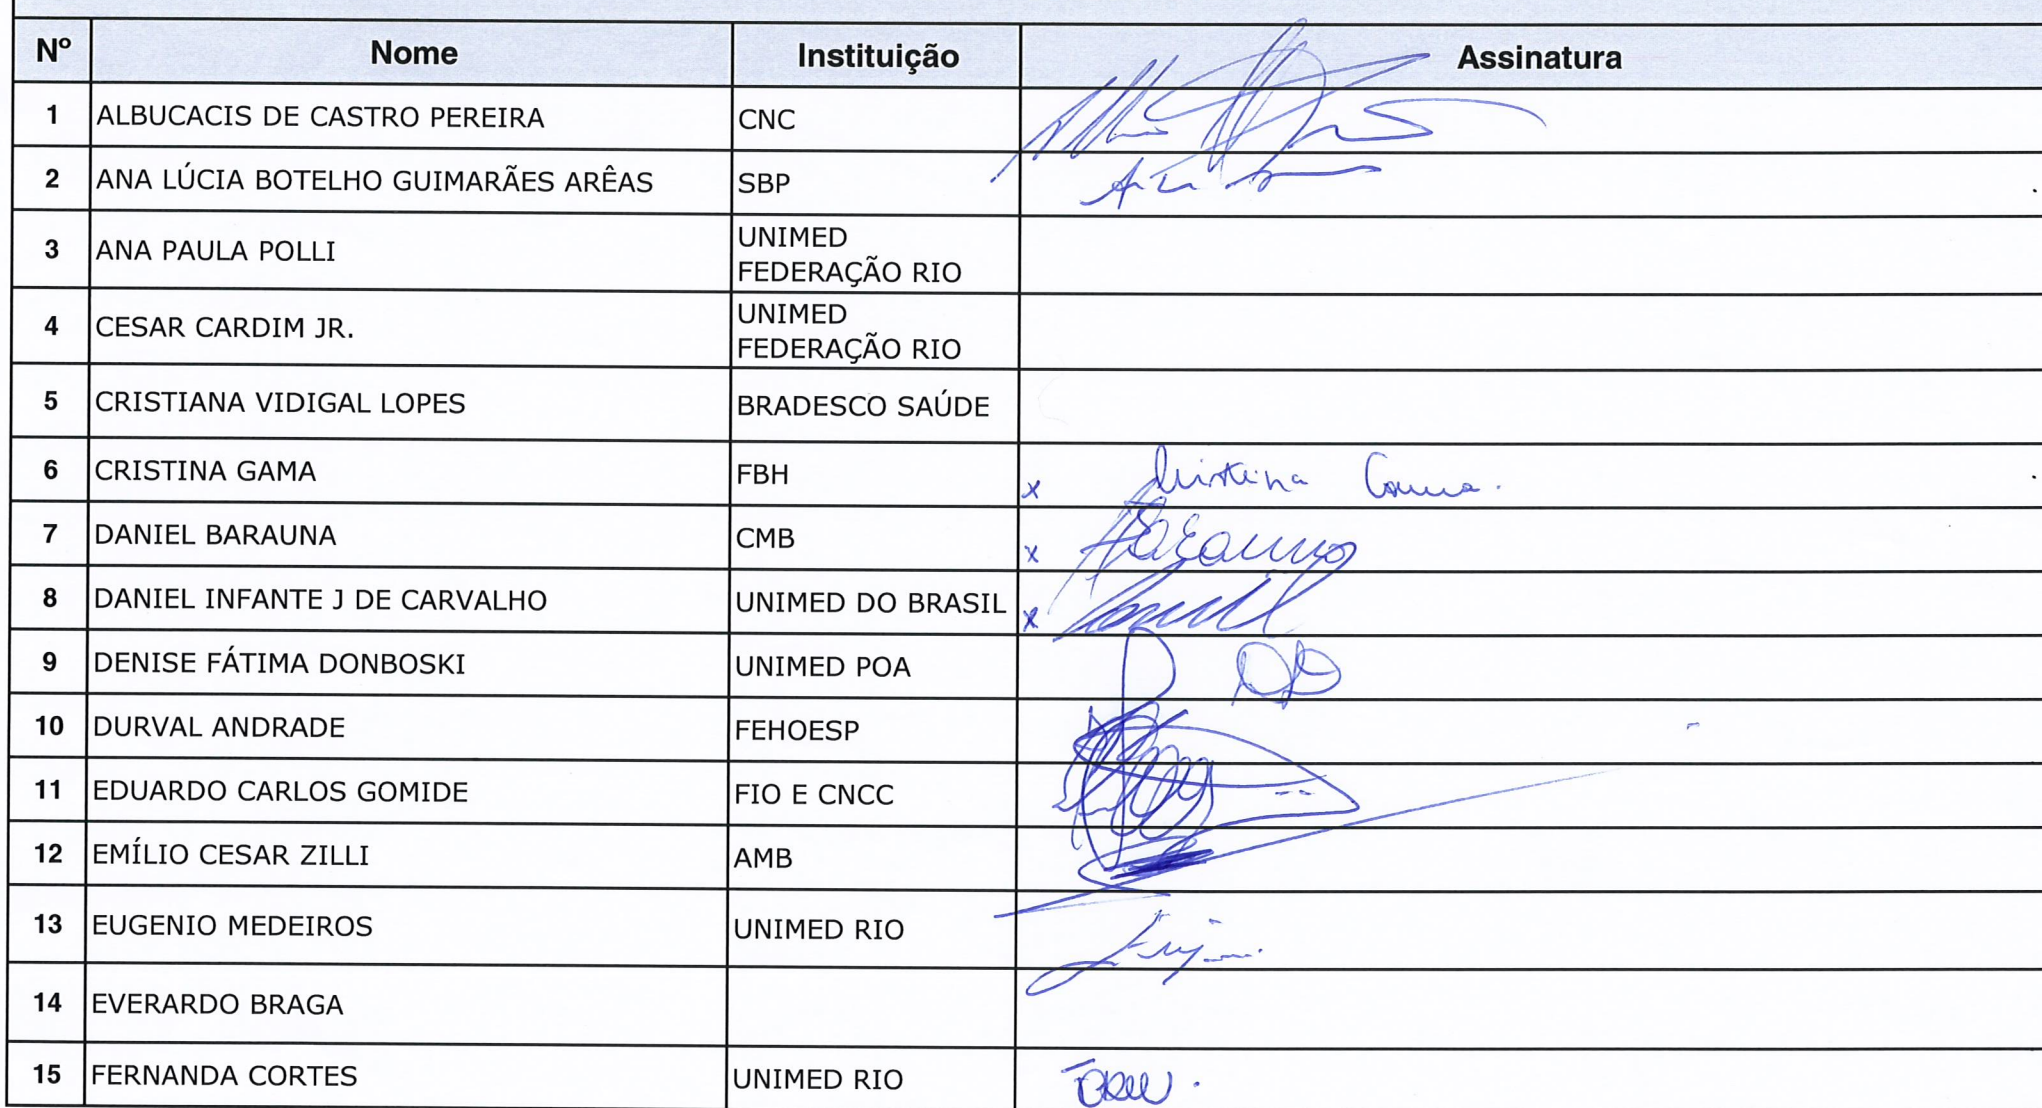 Nº Nome Instituição Assinatura
1 ALBUCACIS DE CASTRO PEREIRA CNC
2 ANA LÚCIA BOTELHO GUIMARÃES ARÊAS SBP
3 ANA PAULA POLLI UNIMED
FEDERAÇÃO RIO
4 CESAR CARDIM JR. UNIMED
FEDERAÇÃO RIO
5 CRISTIANA VIDIGAL LOPES BRADESCO SAÚDE
6 CRISTINA GAMA FBH x Cristina Gama.
7 DANIEL BARAUNA CMB x
8 DANIEL INFANTE J DE CARVALHO UNIMED DO BRASIL x
9 DENISE FÁTIMA DONBOSKI UNIMED POA
10 DURVAL ANDRADE FEHOESP
11 EDUARDO CARLOS GOMIDE FIO E CNCC
12 EMÍLIO CESAR ZILLI AMB
13 EUGENIO MEDEIROS UNIMED RIO
14 EVERARDO BRAGA
15 FERNANDA CORTES UNIMED RIO